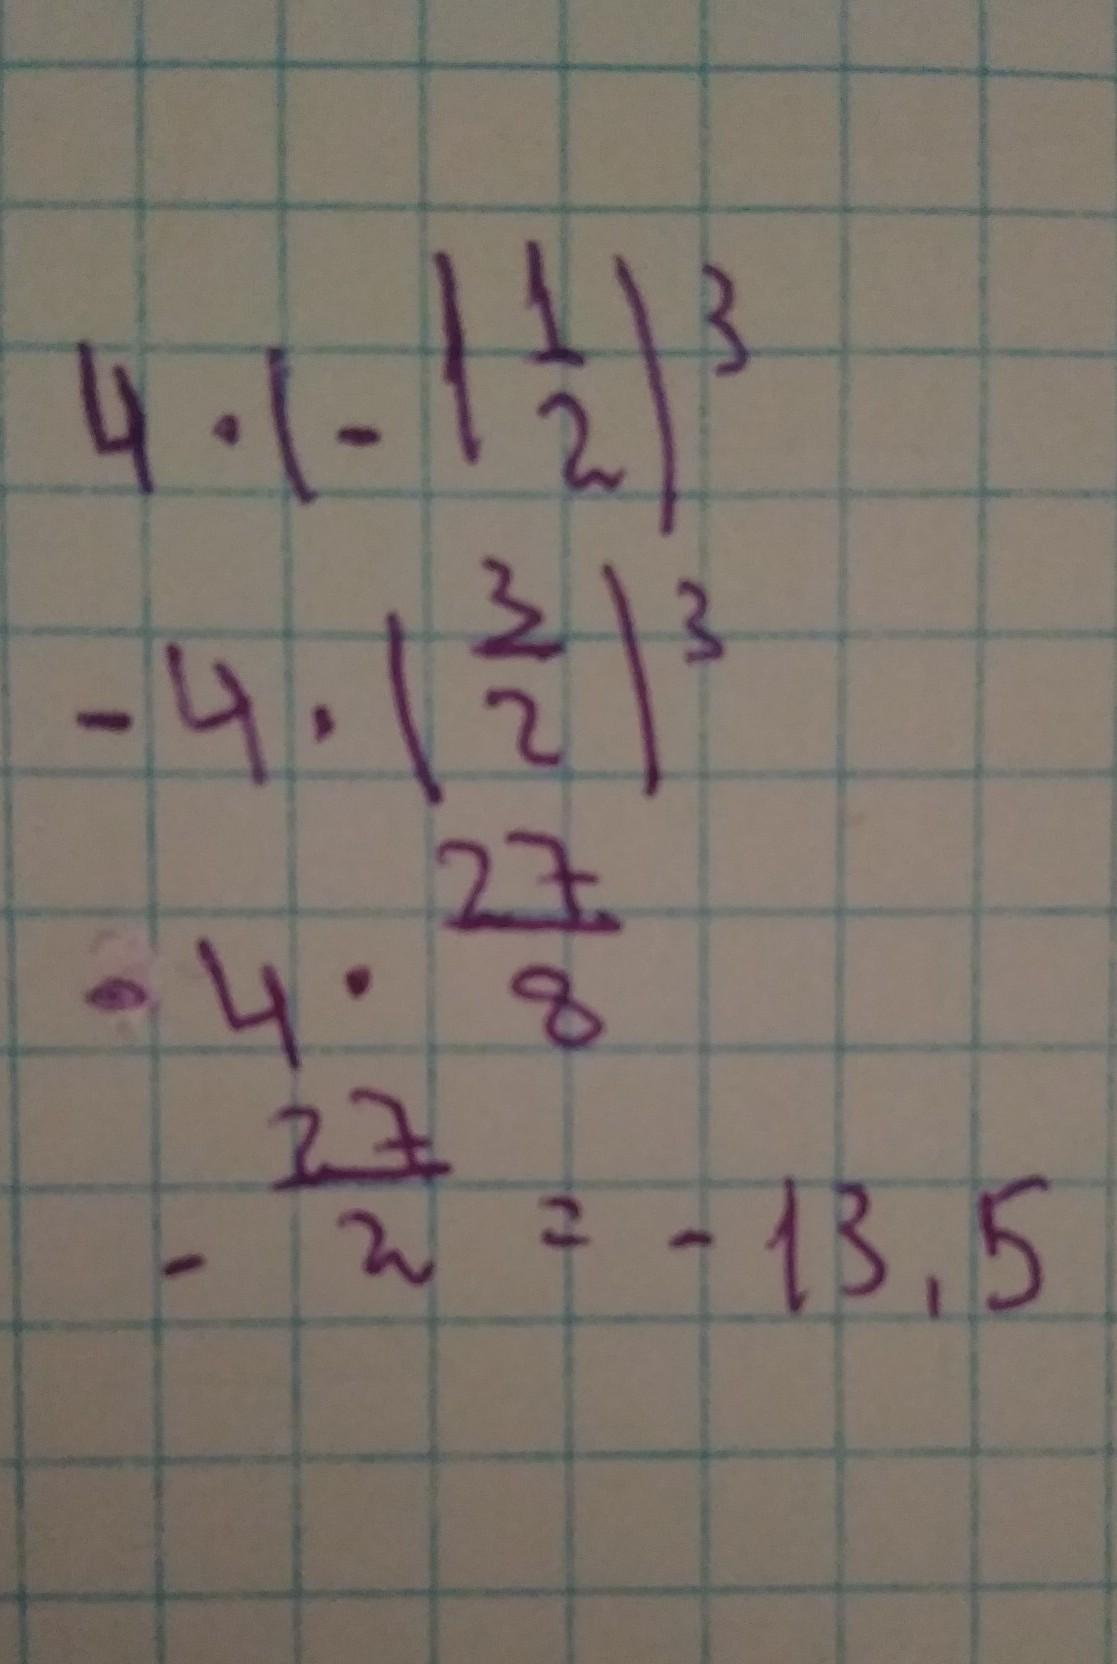 4 · (- 1 1/2)³
-4 · (3/2)³
- 4 · 27/8
- 27/2 = - 13,5